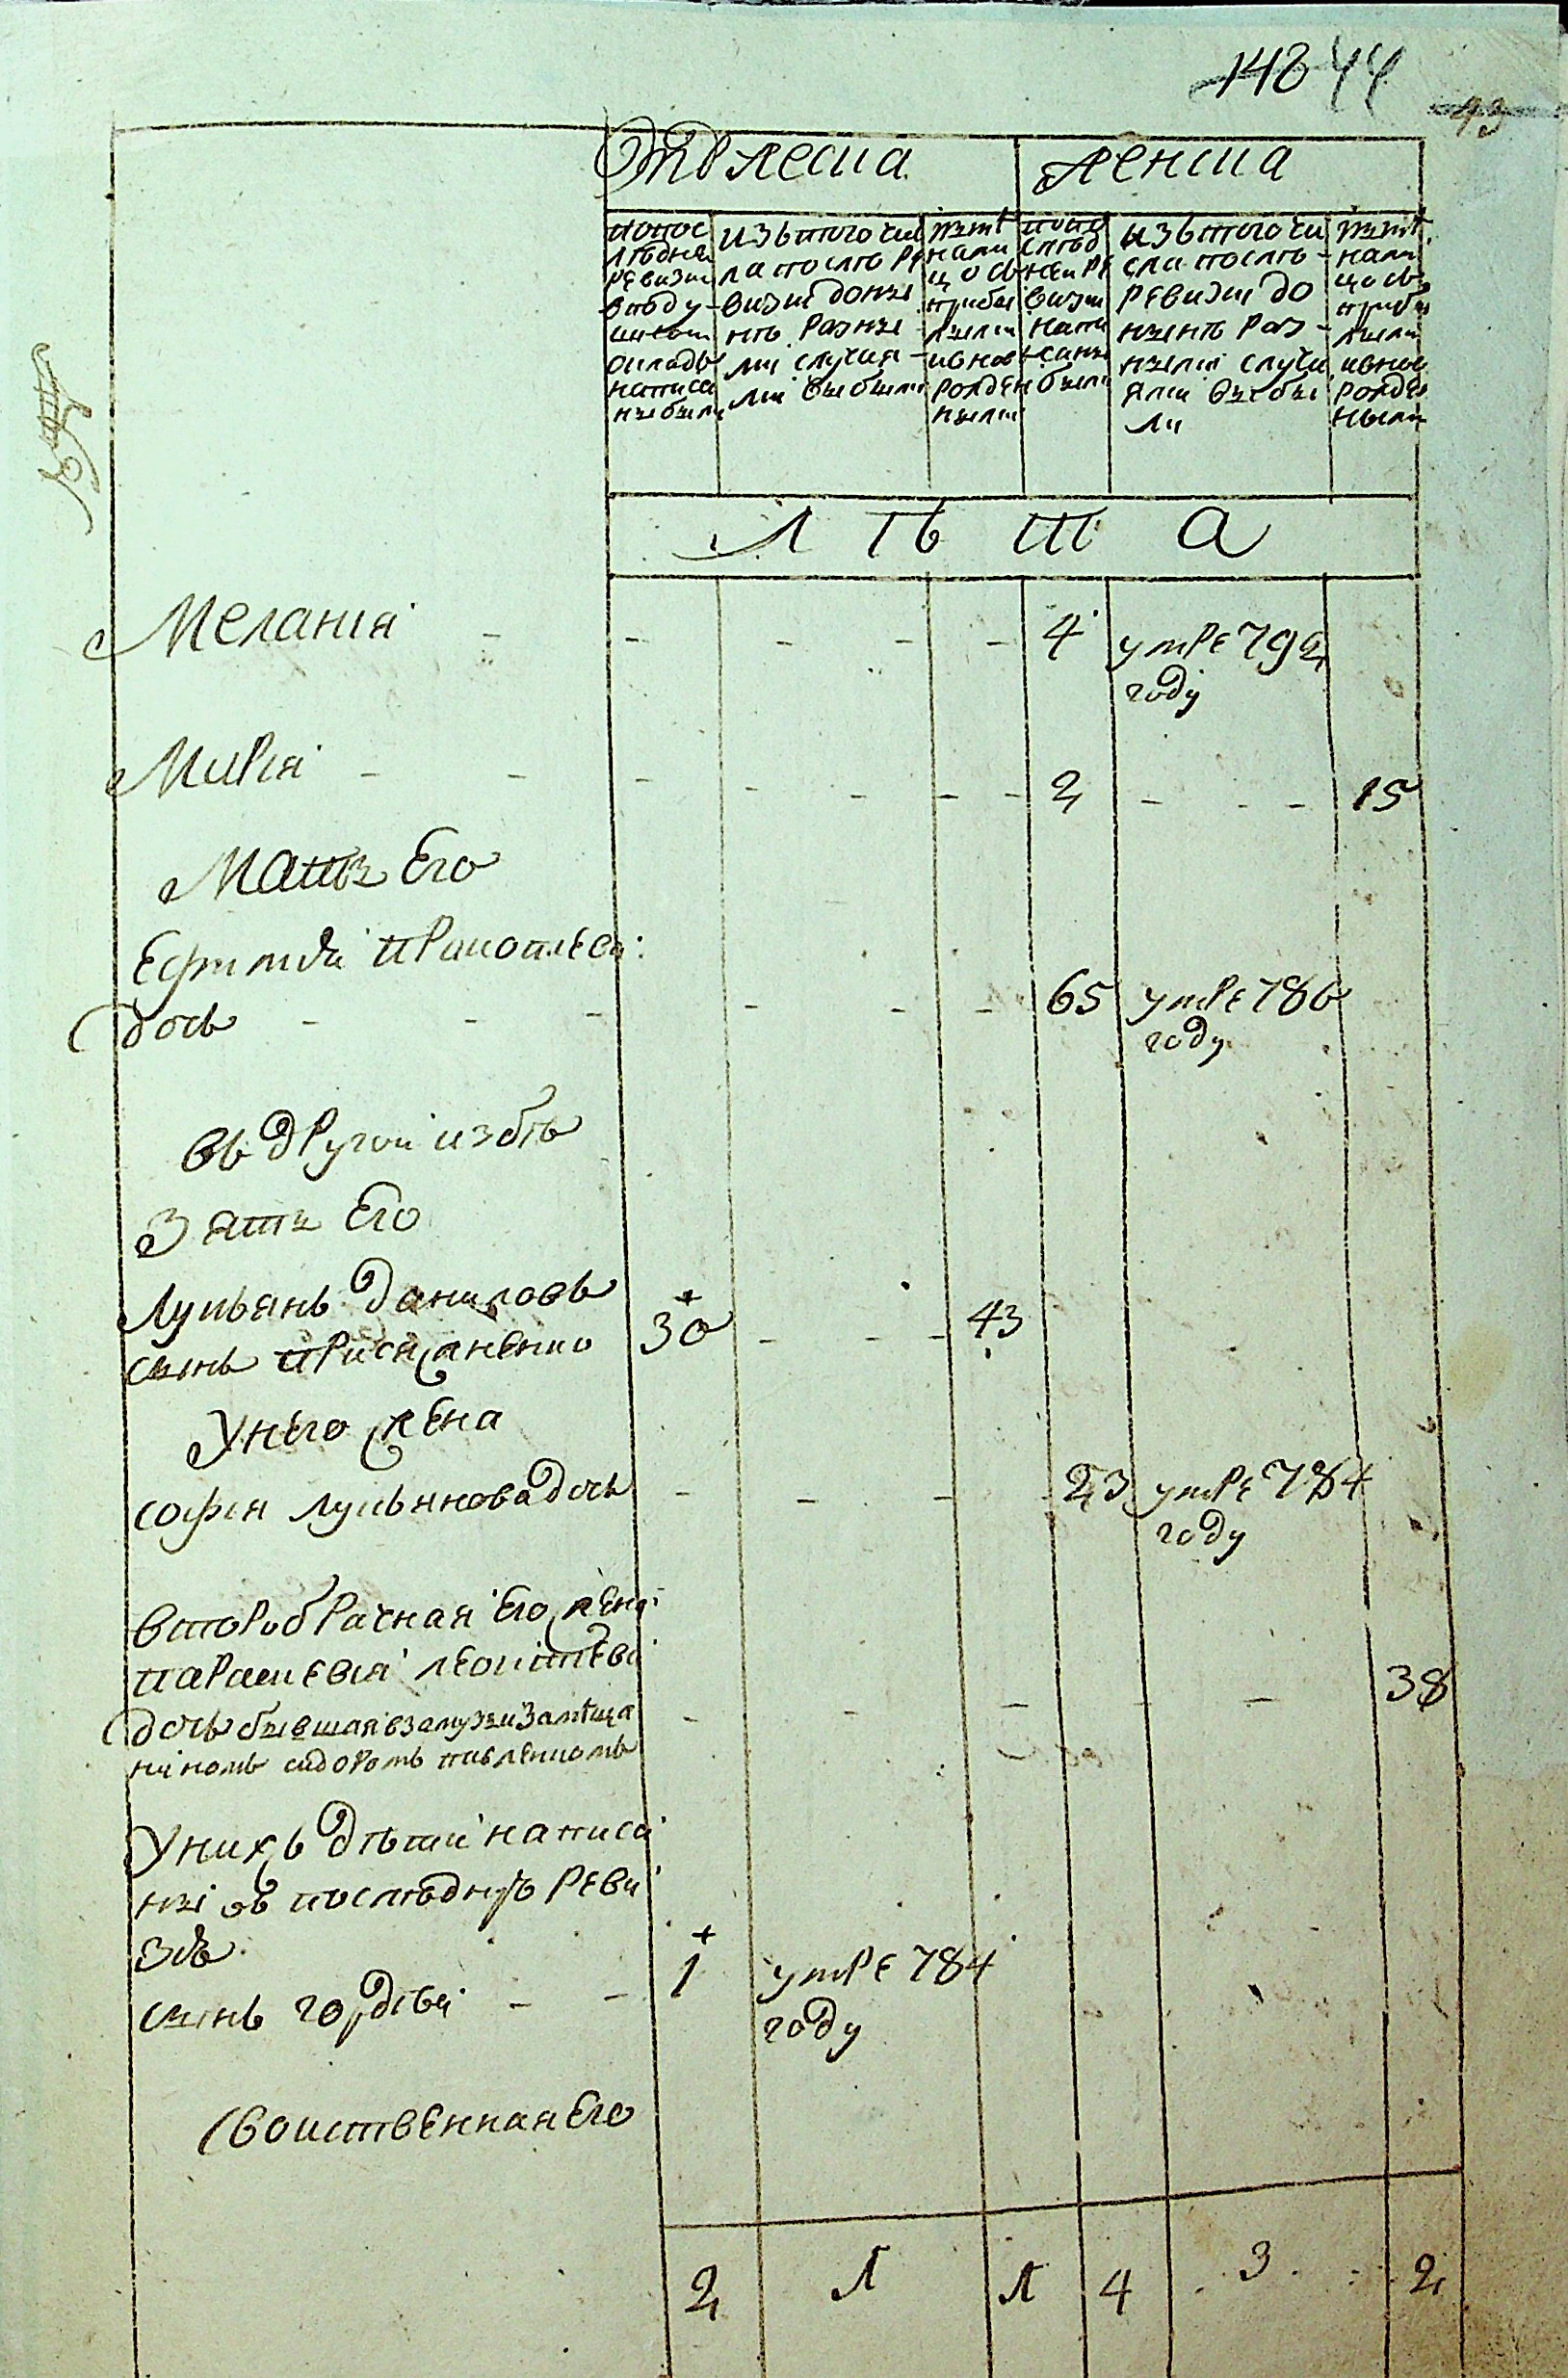 148 44
43
мужеска женска
попос лѣдней ревизи вподу- шной окладъ написа ны были
изътого чис ла послѣ ре визи доны нѣ разны ми случая ми выбыли
нынѣ нали цо съ прибы лыми ивнов рожден ными
попо слѣд ней ре визи напи саны были
изътого чи сла послѣ ревизи до нынѣ раз ными случа ями выбы ли
нынѣ нали цо съ прибы лыми ивнов рожден ными
л ѣ т а
Меланія - - - - - 4 умре 792
году
Марія - - - - - - - 2 - - - 15
Мать Его
Ефимія Прокопьева
дочь - - - - - - 65 умре 786
году
въ другой избѣ
Зять Его
Лукьянъ Даниловъ
сынъ 30 - - - 43
Унего жена
софія лукьянова дочь - - - 23 умре 784
году
второбрачная Его жена
параскевія леонтьева
дочь бывшая взамужи замѣща - - - - - 38
ниномъ сидоромъ павленкомъ
Унихъ дѣти написа
ны въ послѣдную реви
зію
сынъ гордѣй - - 1 умре 784
году
Своиственная Его
2 1 1 4 3 2